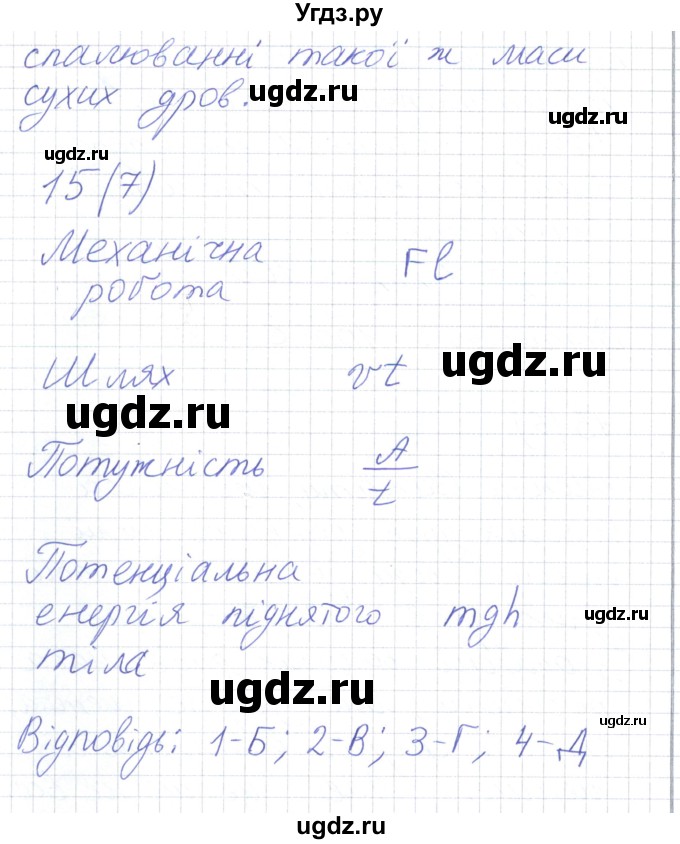 Угдз.ру
спалюванні такої ж маси
сухих дров.
ugdz.ru
ugdz.ru
ugdz.ru
15(7)
Механічна
робота Fl
Шлях vt
ugdz.ru
ugdz.ru
Потужність A/t
Потенціальна
енергія піднятого mgh
ugdz.ru
тіла
ugdz.ru
ugdz.ru
Відповідь: 1-Б; 2-В; 3-Г; 4-Д
ugdz.ru